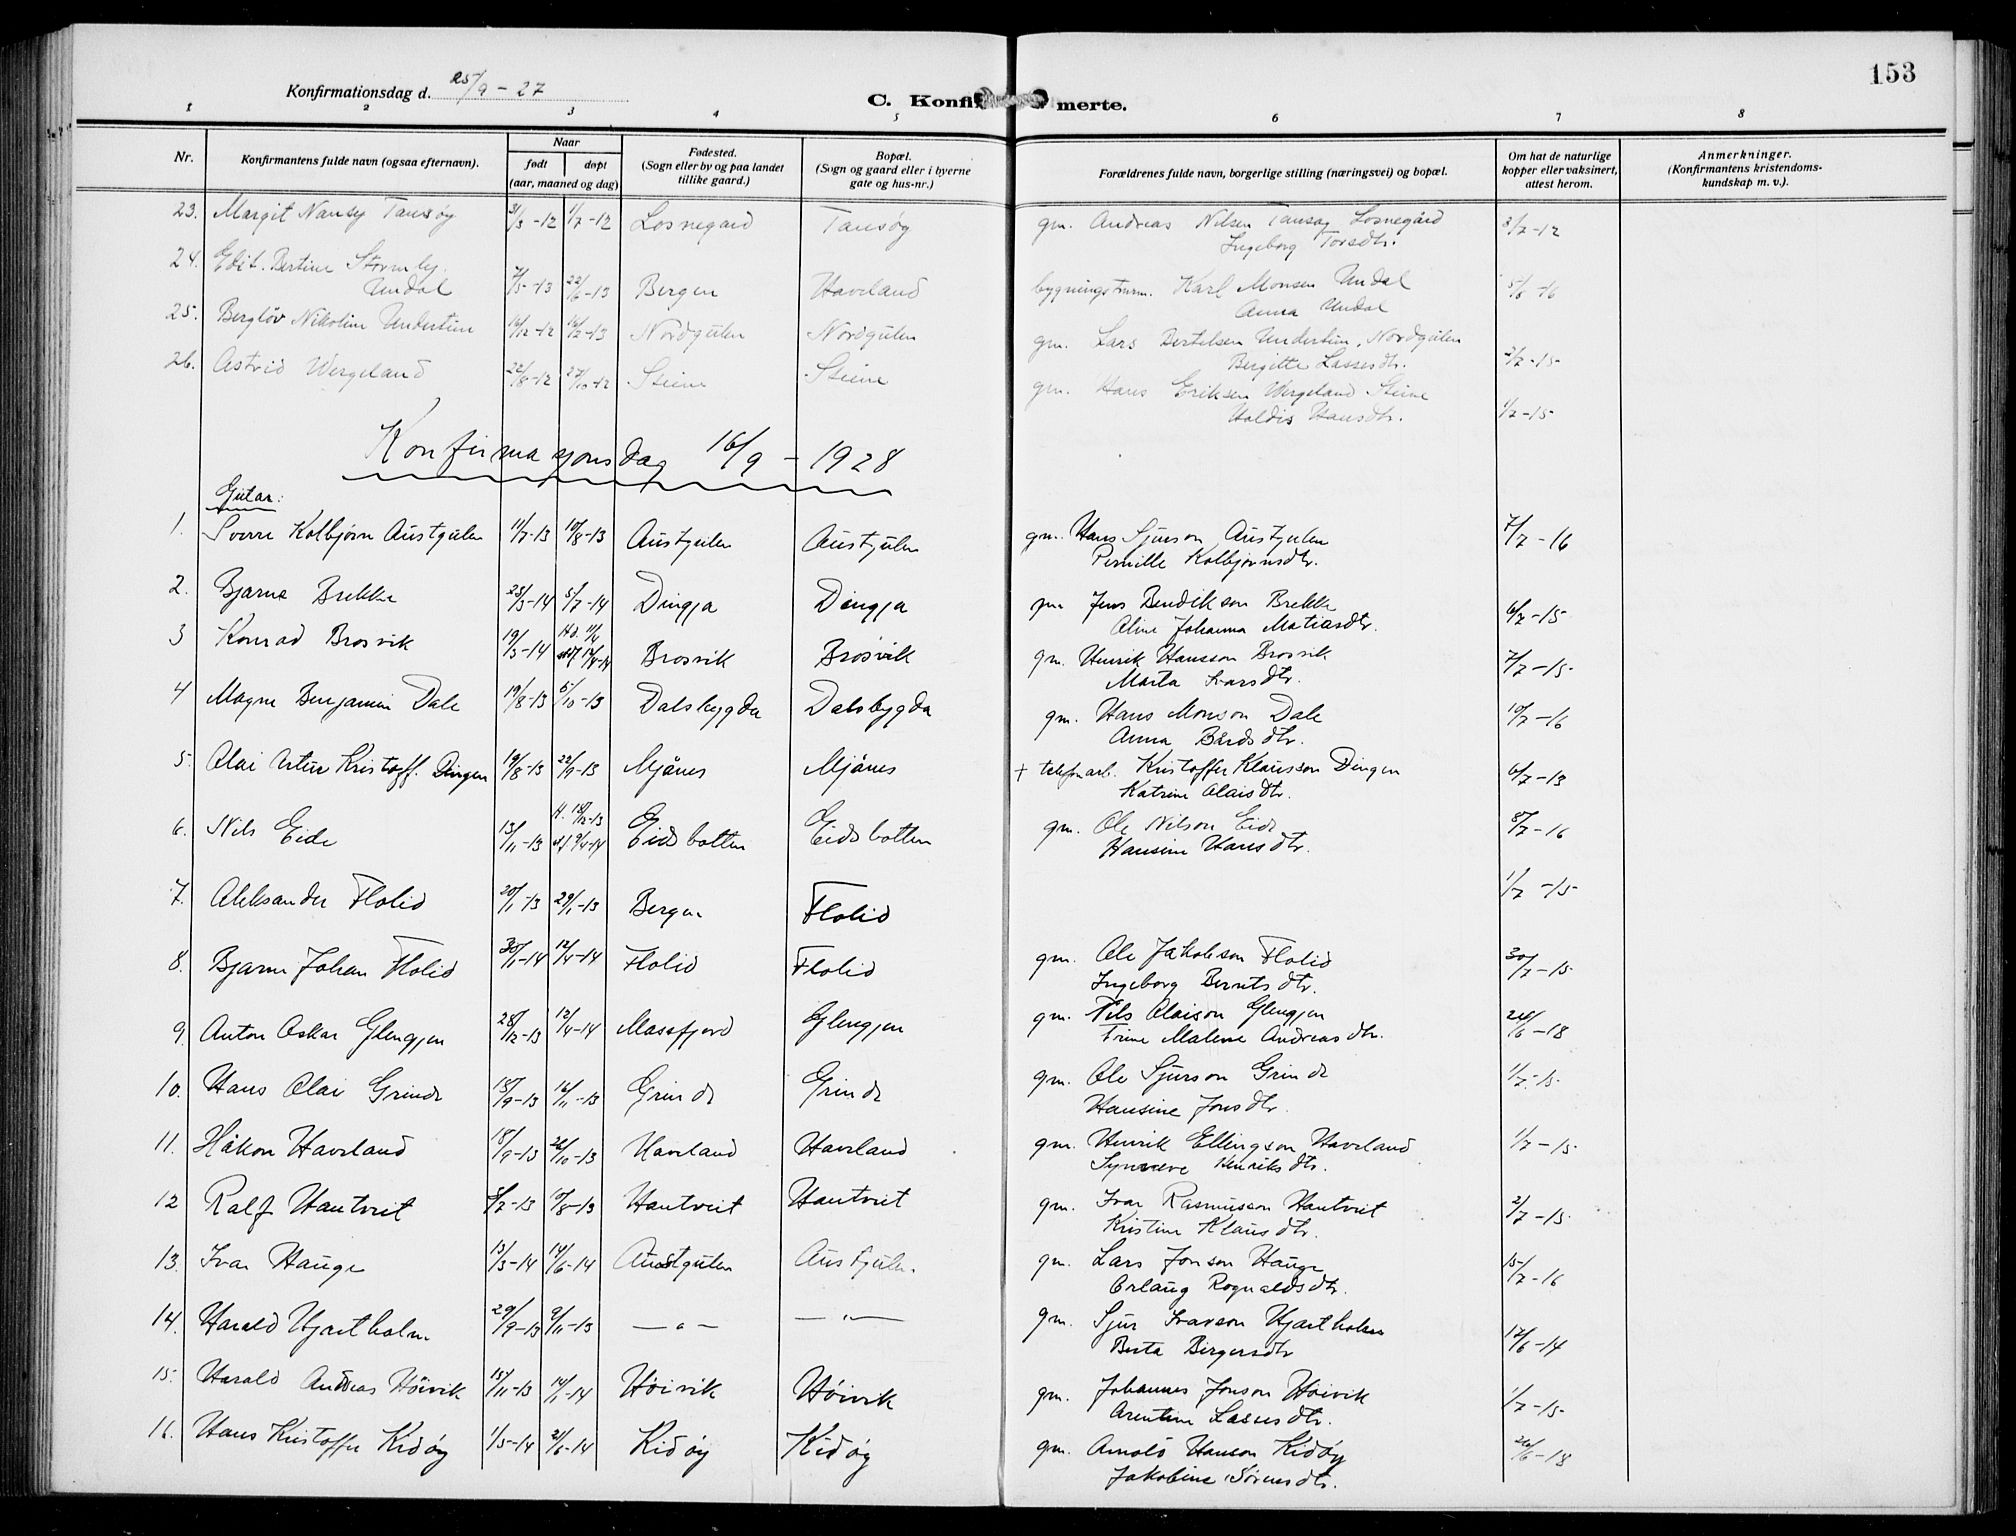 153
Konfirmationsdag d. 25/9 - 27
C. Konfi merte.
1 2 3 4 5 6 7 8
Nr.
Konfirmantens fulde navn (ogsaa efternavn).
Naar
født døpt
(aar, maaned og dag)
Fødested.
(Sogn eller by og paa landet
tillike gaard.)
Bopæl.
(Sogn og gaard eller i byerne
gate og hus-nr.)
Forældrenes fulde navn, borgerlige stilling (næringsvei) og bopæl.
Om hat de naturlige
kopper eller vaksinert,
attest herom.
Anmerkninger.
(Konfirmantens kristendoms-
kundskap m. v.).
23. Margit Nansy Tansøy 31/3-12 1/7-12 Losnegard Tansøy gm. Andreas Nilsen Tansøy Losnegård 3/7-12
Ingeborg Torsdtr.
24. Edit. Bertine Stormby.
Undal 7/5-13 22/6-13 Bergen Haveland bygnings Karl Monsen Undal 5/8-16
Anna Undal
25. Bergløv Nikoline Undertun 16/12-12 16/2-13 Nordgulen Nordgulen gm. Lars Bertelsen Undertun, Nordgulen
Birgitte Lassesdtr. 2/7-15
26. Astrid Wergeland 22/8-12 27/10-12 Steine Steine gm. Hans Eriksen Wergeland Steine
Haldis Hansdtr. 1/7-15
Konfirmasjonsdag 16/9 - 1928
Gutar:
1. Sverre Kolbjørn Austgulen 11/7-13 10/8-13 Austgulen Austgulen gm. Hans Sjurson Austgulen 7/7-16
Pernille Kolbjørnsdtr.
2. Bjarne Brekke 23/3-14 5/7-14 Dingja Dingja gm Jens Bendikson Brekke 6/7-15
Aline Johanna Matiasdtr.
3 Konrad Brosvik 19/3-14 Hd. 11/4 14/4-14 Brosvik Brosvik gm. Henrik Hansson Brosvik 7/7-15
Marta Ivarsdtr.
4 Magne Benjamin Dale 19/8-13 5/10-13 Dalsbygda Dalsbygda gm. Hans Monson Dale 10/7-16
Anna Bårdsdtr.
5 Olai Artur Kristoff. Dingen 19/8-13 22/9-13 Mjånes Mjånes + telefonarb. Kristoffer Klausson Dingen 6/7-13
Katrine Olaisdtr.
6. Nils Eide 13/11-13 H. 18/12-13 Eidsbotten Eidsbotten gm. Ole Nilson Eide 8/7-16
Hansine Hansdtr.
7. Aleksander Flolid 20/1-13 29/1-13 Bergen Flolid 1/7-15
8. Bjarne Johan Flolid 30/1-14 12/4-14 Flolid Flolid gm. Ole Jakobson Flolid 30/7-15
Ingeborg Berntsdtr.
9. Anton Oskar Glengjen 28/12-13 12/4-14 Massfjord Glengjen gm. Nils Olaison Glengjen 26/6-18
Trine Malene Andreasdtr.
10. Hans Olai Grinde 15/9-13 16/11-13 Grinde Grinde gm. Ole Sjurson Grinde 1/7-15
Hansine Jonsdtr.
11. Håkon Haveland 18/9-13 26/10-13 Haveland Haveland gm. Henrik Ellingson Haveland 1/7-15
Synneve Henriksdtr.
12 Ralf Hantveit 5/7-13 10/8-13 Hantveit Hantveit gm. Ivar Rasmusson Hantveit 2/7-15
Kristine Klausdtr.
13. Ivar Hauge 13/3-14 14/6-14 Austgulen Austgulen. gm. Lars Jonson Hauge 15/7-16
Erlaug Rognaldsdtr.
14. Harald Hjartholm 29/9-13 9/11-13 — " — — " — gm. Sjur Ivarson Hjartholm 17/6-14
Berta Birgersdtr
15. Harald Andreas Höivik 15/11-13 14/1-14 Höivik Höivik gm. Johannes Jonson Höivik 1/7-15
Arentine Lassesdtr.
16. Hans Kristoffer Kidöy 1/5-14 21/6-14 Kidöy Kidöy gm. Arnold Hanson Kidöy 26/6-18
Jakobine Sörensdtr.